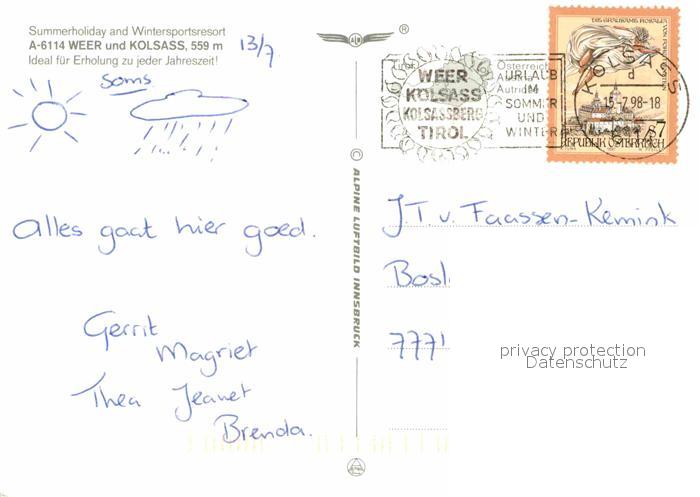 Summerholiday and Wintersportsresort
A-6114 WEER und KOLSASS, 559 m
Ideal für Erholung zu jeder Jahreszeit!
13/7
soms
Alles gaat hier goed.
Gerrit
Magriet
Thea Jeanet
Brenda.
© ALPINE LUFTBILD INNSBRUCK
®
WEER
KOLSASS
KOLSASSBERG
TIROL
URLAUB
IM
SOMMER
UND
WINTER
KOLSASS
d
15-7.98-18
7
REPUBLIK ÖSTERREICH
J.T. v. Faassen-Kemink
privacy protection
Datenschutz